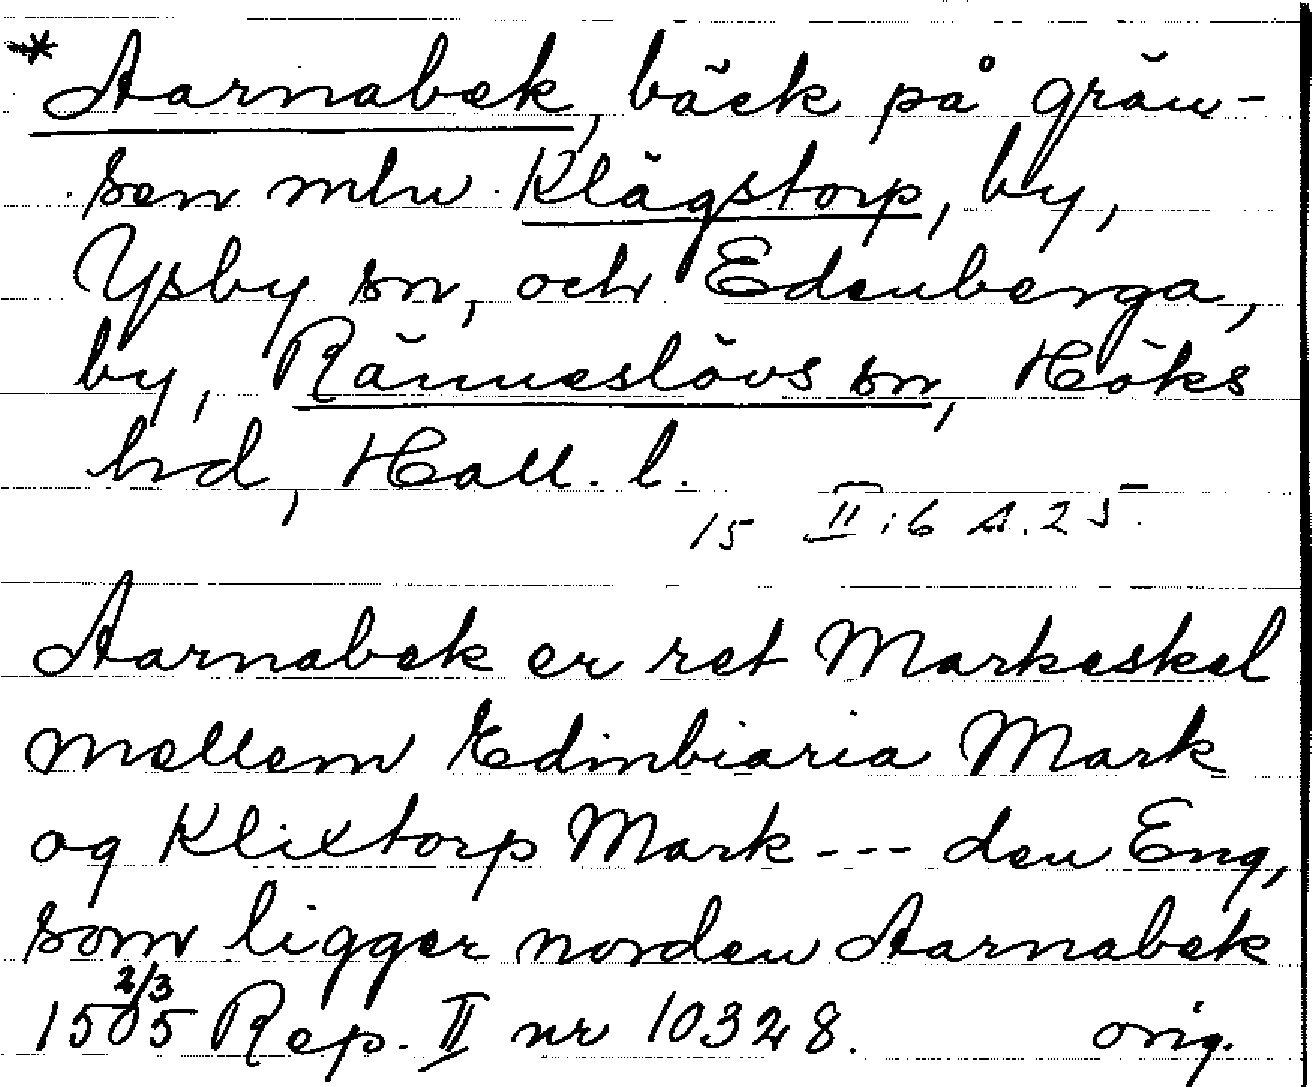 * Aarnabek, bäck på grän-
sen mln Klägstorp, by,
Ysby sn, och Edenberga,
by, Ränneslövs sn, Höks
hd, Hall. l.
15 II:6 s. 25.
Aarnabek er ret Markeskel
mellem Edinbiaria Mark
og Klixtorp Mark --- den Eng,
som ligger norden Aarnabek
2/3
1505 Rep. II nr 10328. orig.